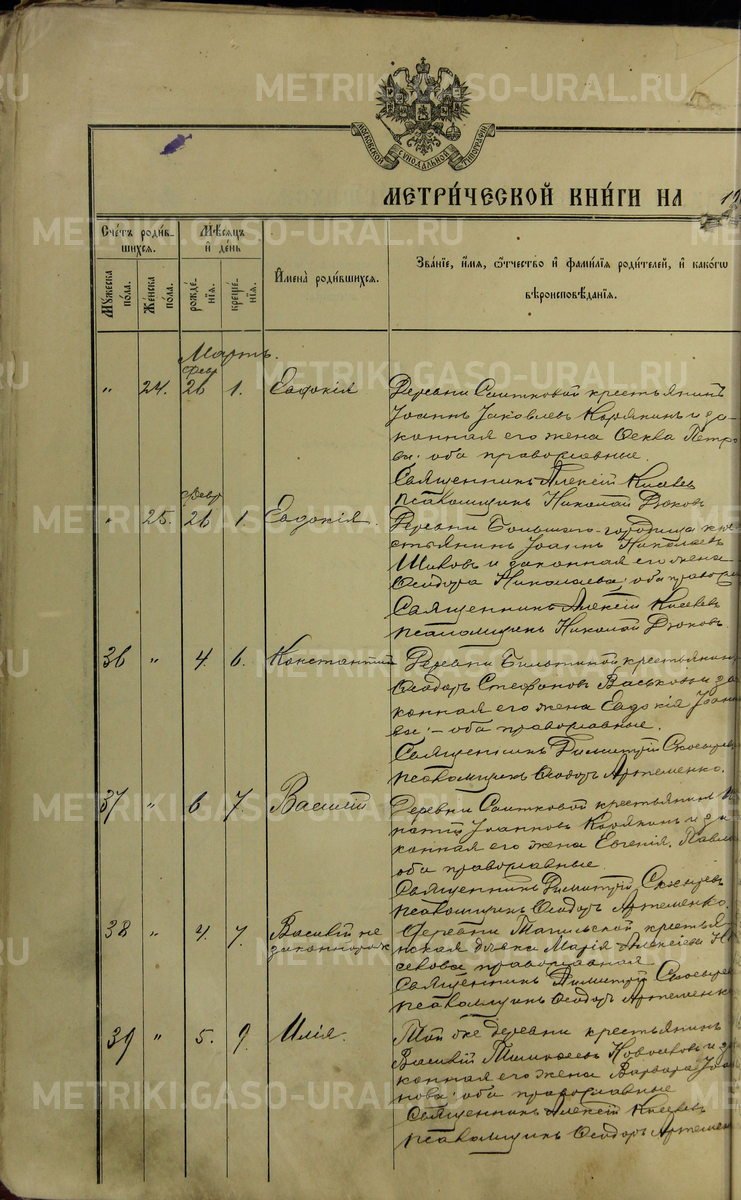 METRIKI.GASO-URAL.RU
МОСКОВСКОЙ СѴНОДАЛЬНОЙ ТИПОГРАФІИ
МЕТРИ́ЧЕСКОЙ КНИ́ГИ НА 19
Счéтъ роди́в-
шихся.
Мꙋ́жеска
по́ла.
Же́нска
по́ла.
Мѣ́сяцъ
и҆ де́нь
рожде́-
нїѧ.
креще́-
нїѧ.
И҆мена̀ роди́вшихсѧ.
Зва́нїе, и҆́мѧ, ѻ҆́тчество и҆ фами́лїѧ роди́телей, и҆ како́гѡ
вѣроисповѣ́данїѧ.
Мартъ.
" 24. Февр 26 1. Евдокія
Деревни Саитковой крестьянинъ
Іоаннъ Іаковлевъ Корякинъ и за-
конная его жена Ѳекла Петро
ва: оба православные.
Священникъ Алексій Киселевъ
псаломщикъ Николай Дюковъ
" 25. Февр 26 1. Евдокія.
Деревни Большаго-городища кре
стьянинъ Іоаннъ Николаевъ
и законная его жена
Ѳеодора Николаева: оба правосл
Священникъ Алексій Киселевъ
псаломщикъ Николай Дюковъ
36 " 4. 6. Константинъ
Деревни крестьянинъ
Ѳеодоръ Стефановъ Васьковъ и за
конная его жена Евдокія Іоан
ва: - оба православные.
Священникъ Димитрій
псаломщикъ Ѳеодоръ Артеменко.
37 " 6 7. Василій
Деревни Саитковой крестьянинъ
патій Іоанновъ Корякинъ и за
конная его жена Евгенія Павло
оба православные.
Священникъ Димитрій
псаломщикъ Ѳеодоръ Артеменко.
38 " 4. 7. Василій не
законнорож
Деревни Тагильской крестья
нская дѣвка Марія Алексіева
православная
Священникъ Димитрій
псаломщикъ Ѳеодоръ Артеменко
39 " 5. 9. Илія.
Той же деревни крестьянинъ
Василій Новоселовъ и за
конная его жена Варвара Іоан
нова: оба православные
Священникъ Алексій Киселевъ
псаломщикъ Ѳеодоръ Артемен